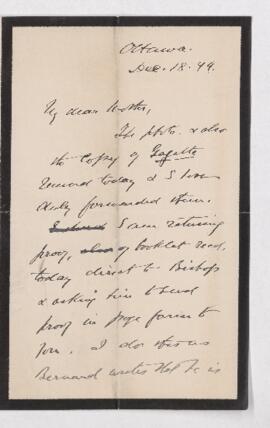 Ottawa.
Dec. 18. 99.
My dear
The photo. & also
the copy of Gazette
today & I have
duly forwarded them.
I am returning
proof, of booklet
today direct to Bishop
& asking him to send
proof in page form to
you. I do this as
Bernard writes that he is